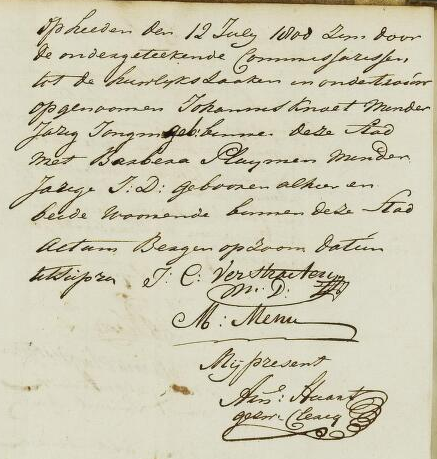 Op heeden den 12 July 1800 Zijn door
de ondergeteekende Commissarissen
tot de huwlyks Zaaken in ondertrouw
opgenoomen Johannes Knoet minder
Jarig Jongm geb: binnen deze Stad
met Barbera Pluymen minder
Jarige J: D: gebooren alhier en
beide woonende binnen deze Stad
Actum Bergen op Zoom datum
ut Supra J: C: Verstraeten
M: D:
M: Menu
Mij present
gesw: Clercq